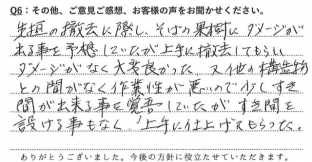 Q6：その他、ご意見ご感想、お客様の声をお聞かせください。
生垣の撤去に際し、そばの果樹にダメージが
出る事を予想していたが上手に撤去してもらい
ダメージがなく大変良かった。又他の構造物
との間がなく作業性が悪いので少しすき
間が出来る事を覚悟していたがすき間を
設ける事もなく、上手に仕上げてもらった。
ありがとうございました。今後の方針に役立たせていただきます。